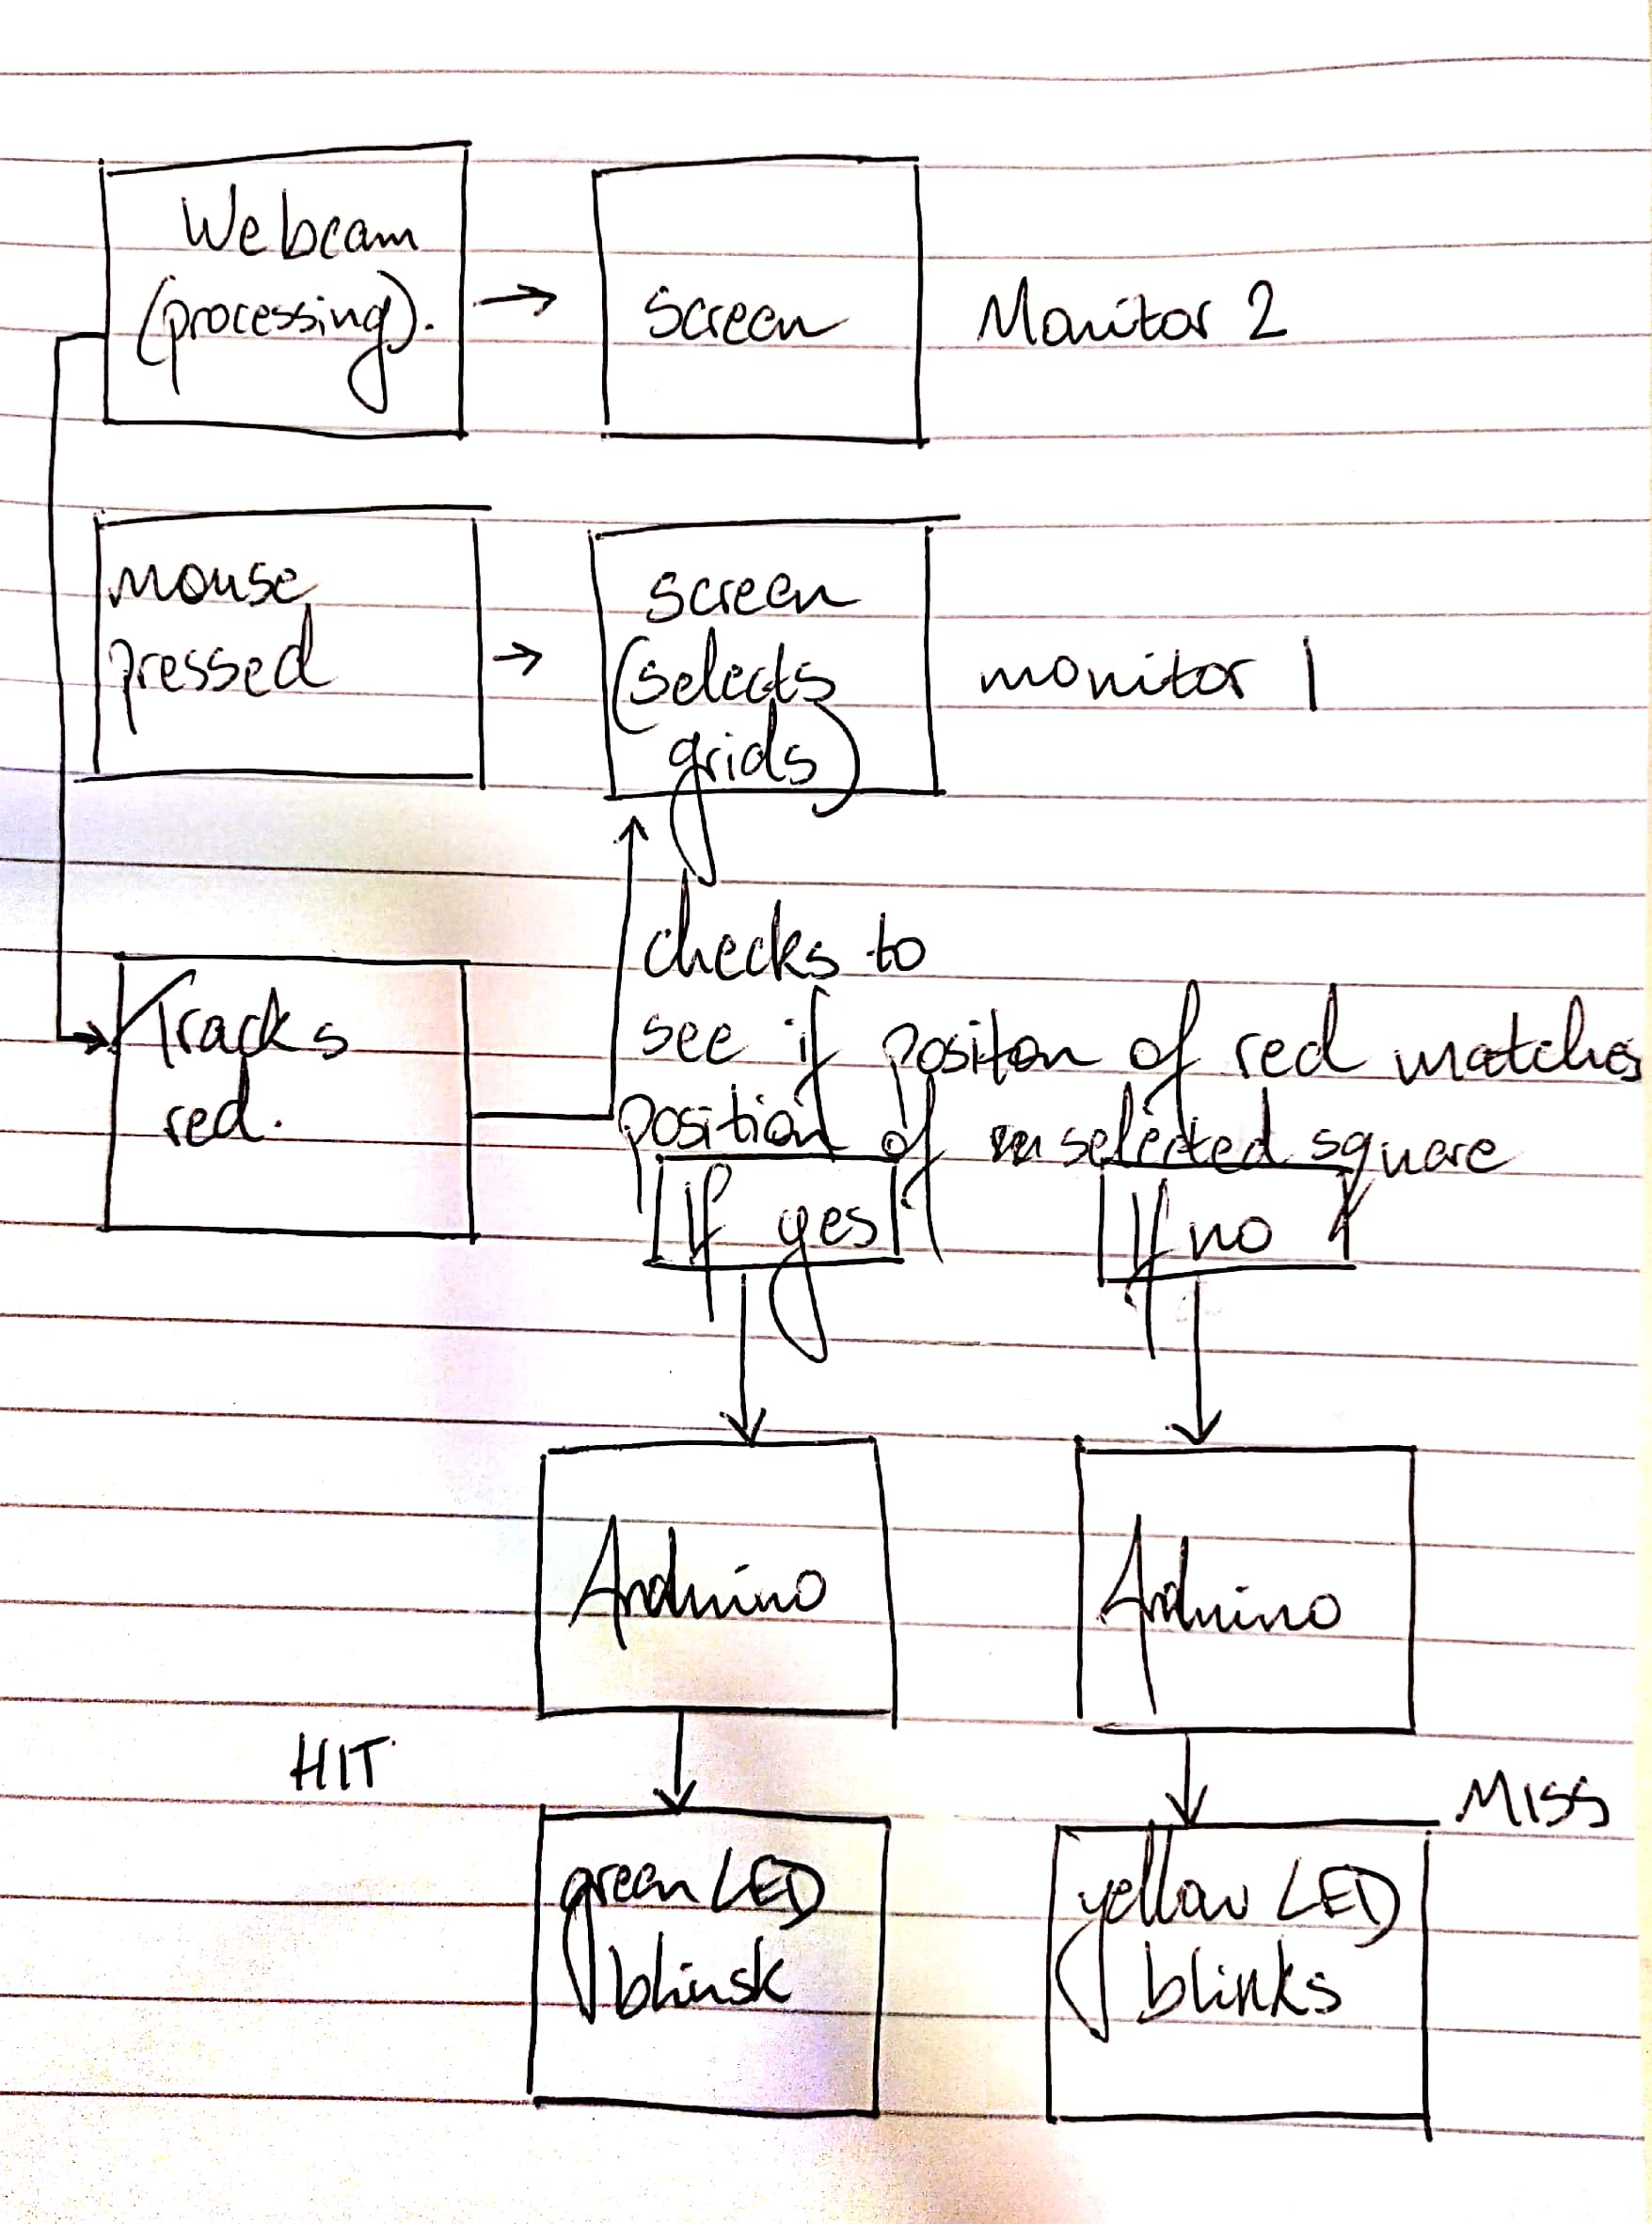 Webcam
(processing).
screen
Monitor 2
mouse
pressed
screen
(selects
grids)
monitor 1
Tracks
red.
checks to
see if positon of red matches
position of selected square
If yes
If no
Arduino
Arduino
HIT
MISS
green LED
blinsk
yellow LED
blinks